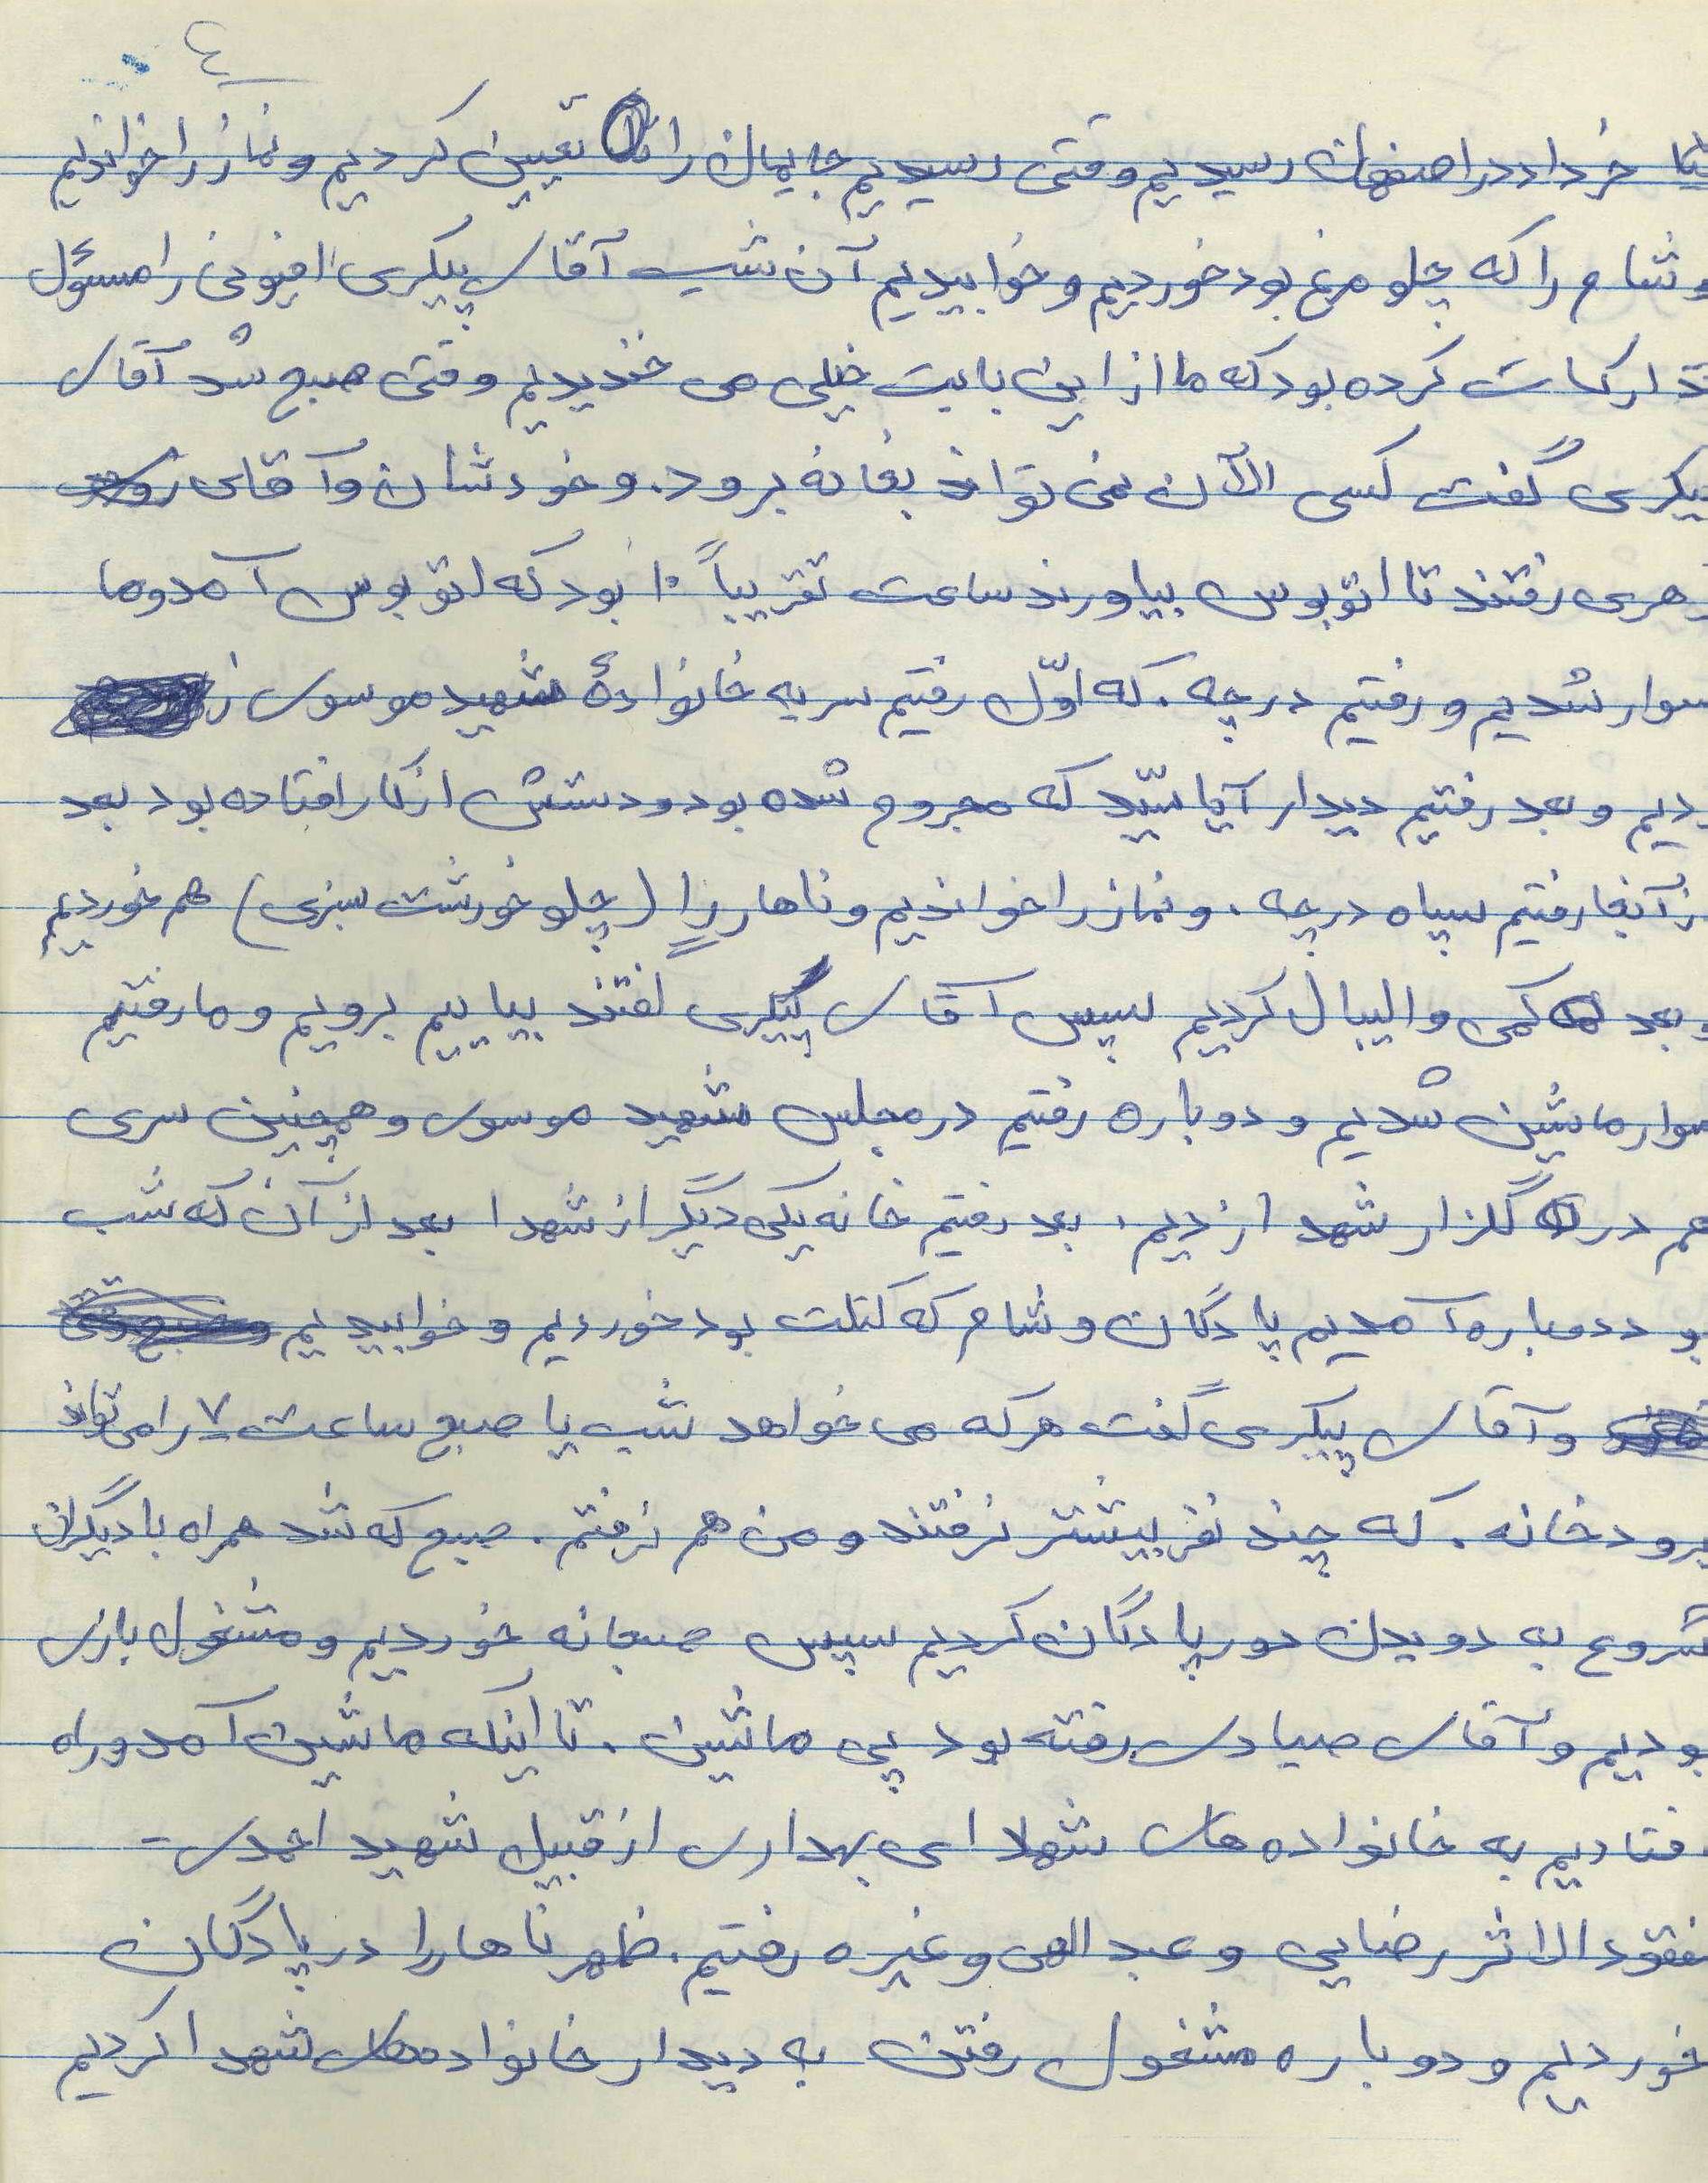 ٤
خرداد در اصفهان رسیدیم وقتی رسیدیم جایمان را تعیین کردیم و نماز را خواندیم
و شام را که چلو مرغ بود خوردیم و خوابیدیم آن شب آقای پیکری افیونی را مسئول
تدارکات کرده بود که ما از این بابت خیلی می خندیدیم وقتی صبح شد آقای
پیکری گفت کسی الآن نمی تواند بخانه برود. و خودشان و آقای
زهری رفتند تا اتوبوس بیاورند ساعت تقریباً ۱۰ بود که اتوبوس آمد و ما
سوار شدیم و رفتیم درچه. که اوّل رفتیم سر به خانوادهٔ شهید موسوی ز
دیم و بعد رفتیم دیدار آقا سیّد که مجروح شده بود و دستش از کار افتاده بود بعد
از آنجا رفتیم سپاه درچه. و نماز را خواندیم و ناهار را (چلو خورشت سبزی) هم خوردیم
و بعد کمی والیبال کردیم سپس آقای پیکری گفتند بیاییم برویم و ما رفتیم
سوار ماشین شدیم و دوباره رفتیم در مجلس شهید موسوی و همچنین سری
هم در گلزار شهدا زدیم. بعد رفتیم خانه یکی دیگر از شهدا بعد از آن که شب
بود دوباره آمدیم پادگان و شام که کتلت بود خوردیم و خوابیدیم
و آقای پیکری گفت هرکه می خواهد شب یا صبح ساعت ۷ را می تواند
برود خانه. که چند نفر بیشتر نرفتند و من هم نرفتم. صبح که شد همراه با دیگران
شروع به دویدن دور پادگان کردیم سپس صبحانه خوردیم و مشغول بازی
بودیم و آقای صیادی رفته بود پی ماشین. تا اینکه ماشین آمد و راه
افتادیم به خانواده های شهدا ی بهداری از قبیل شهید احمدی -
مفقود الاثر رضایی و عبدالهی و غیره رفتیم. ظهر ناهار را در پادگان
خوردیم و دوباره مشغول رفتن به دیدار خانواده های شهدا کردیم